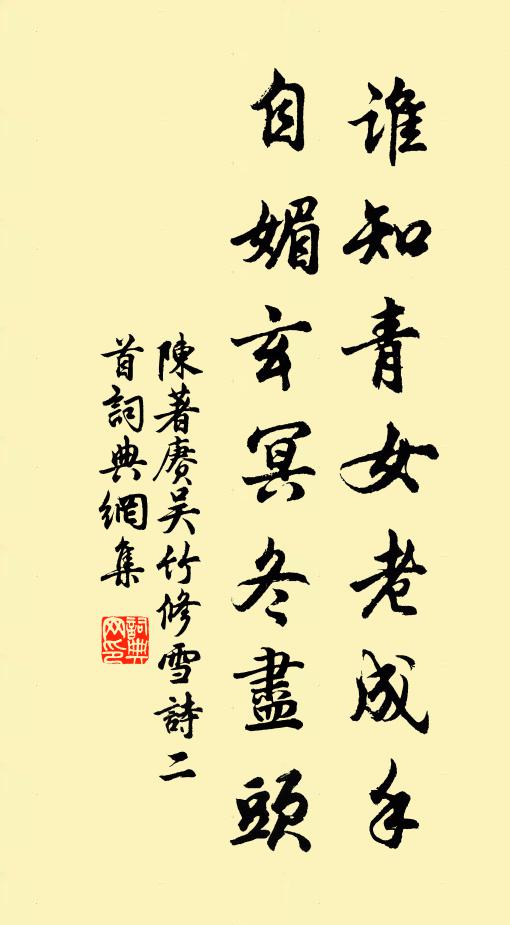 誰知青女老成手
自媚玄冥冬盡頭
陳著賡吴竹修雪詩二
首詞典網集
詞典
网印